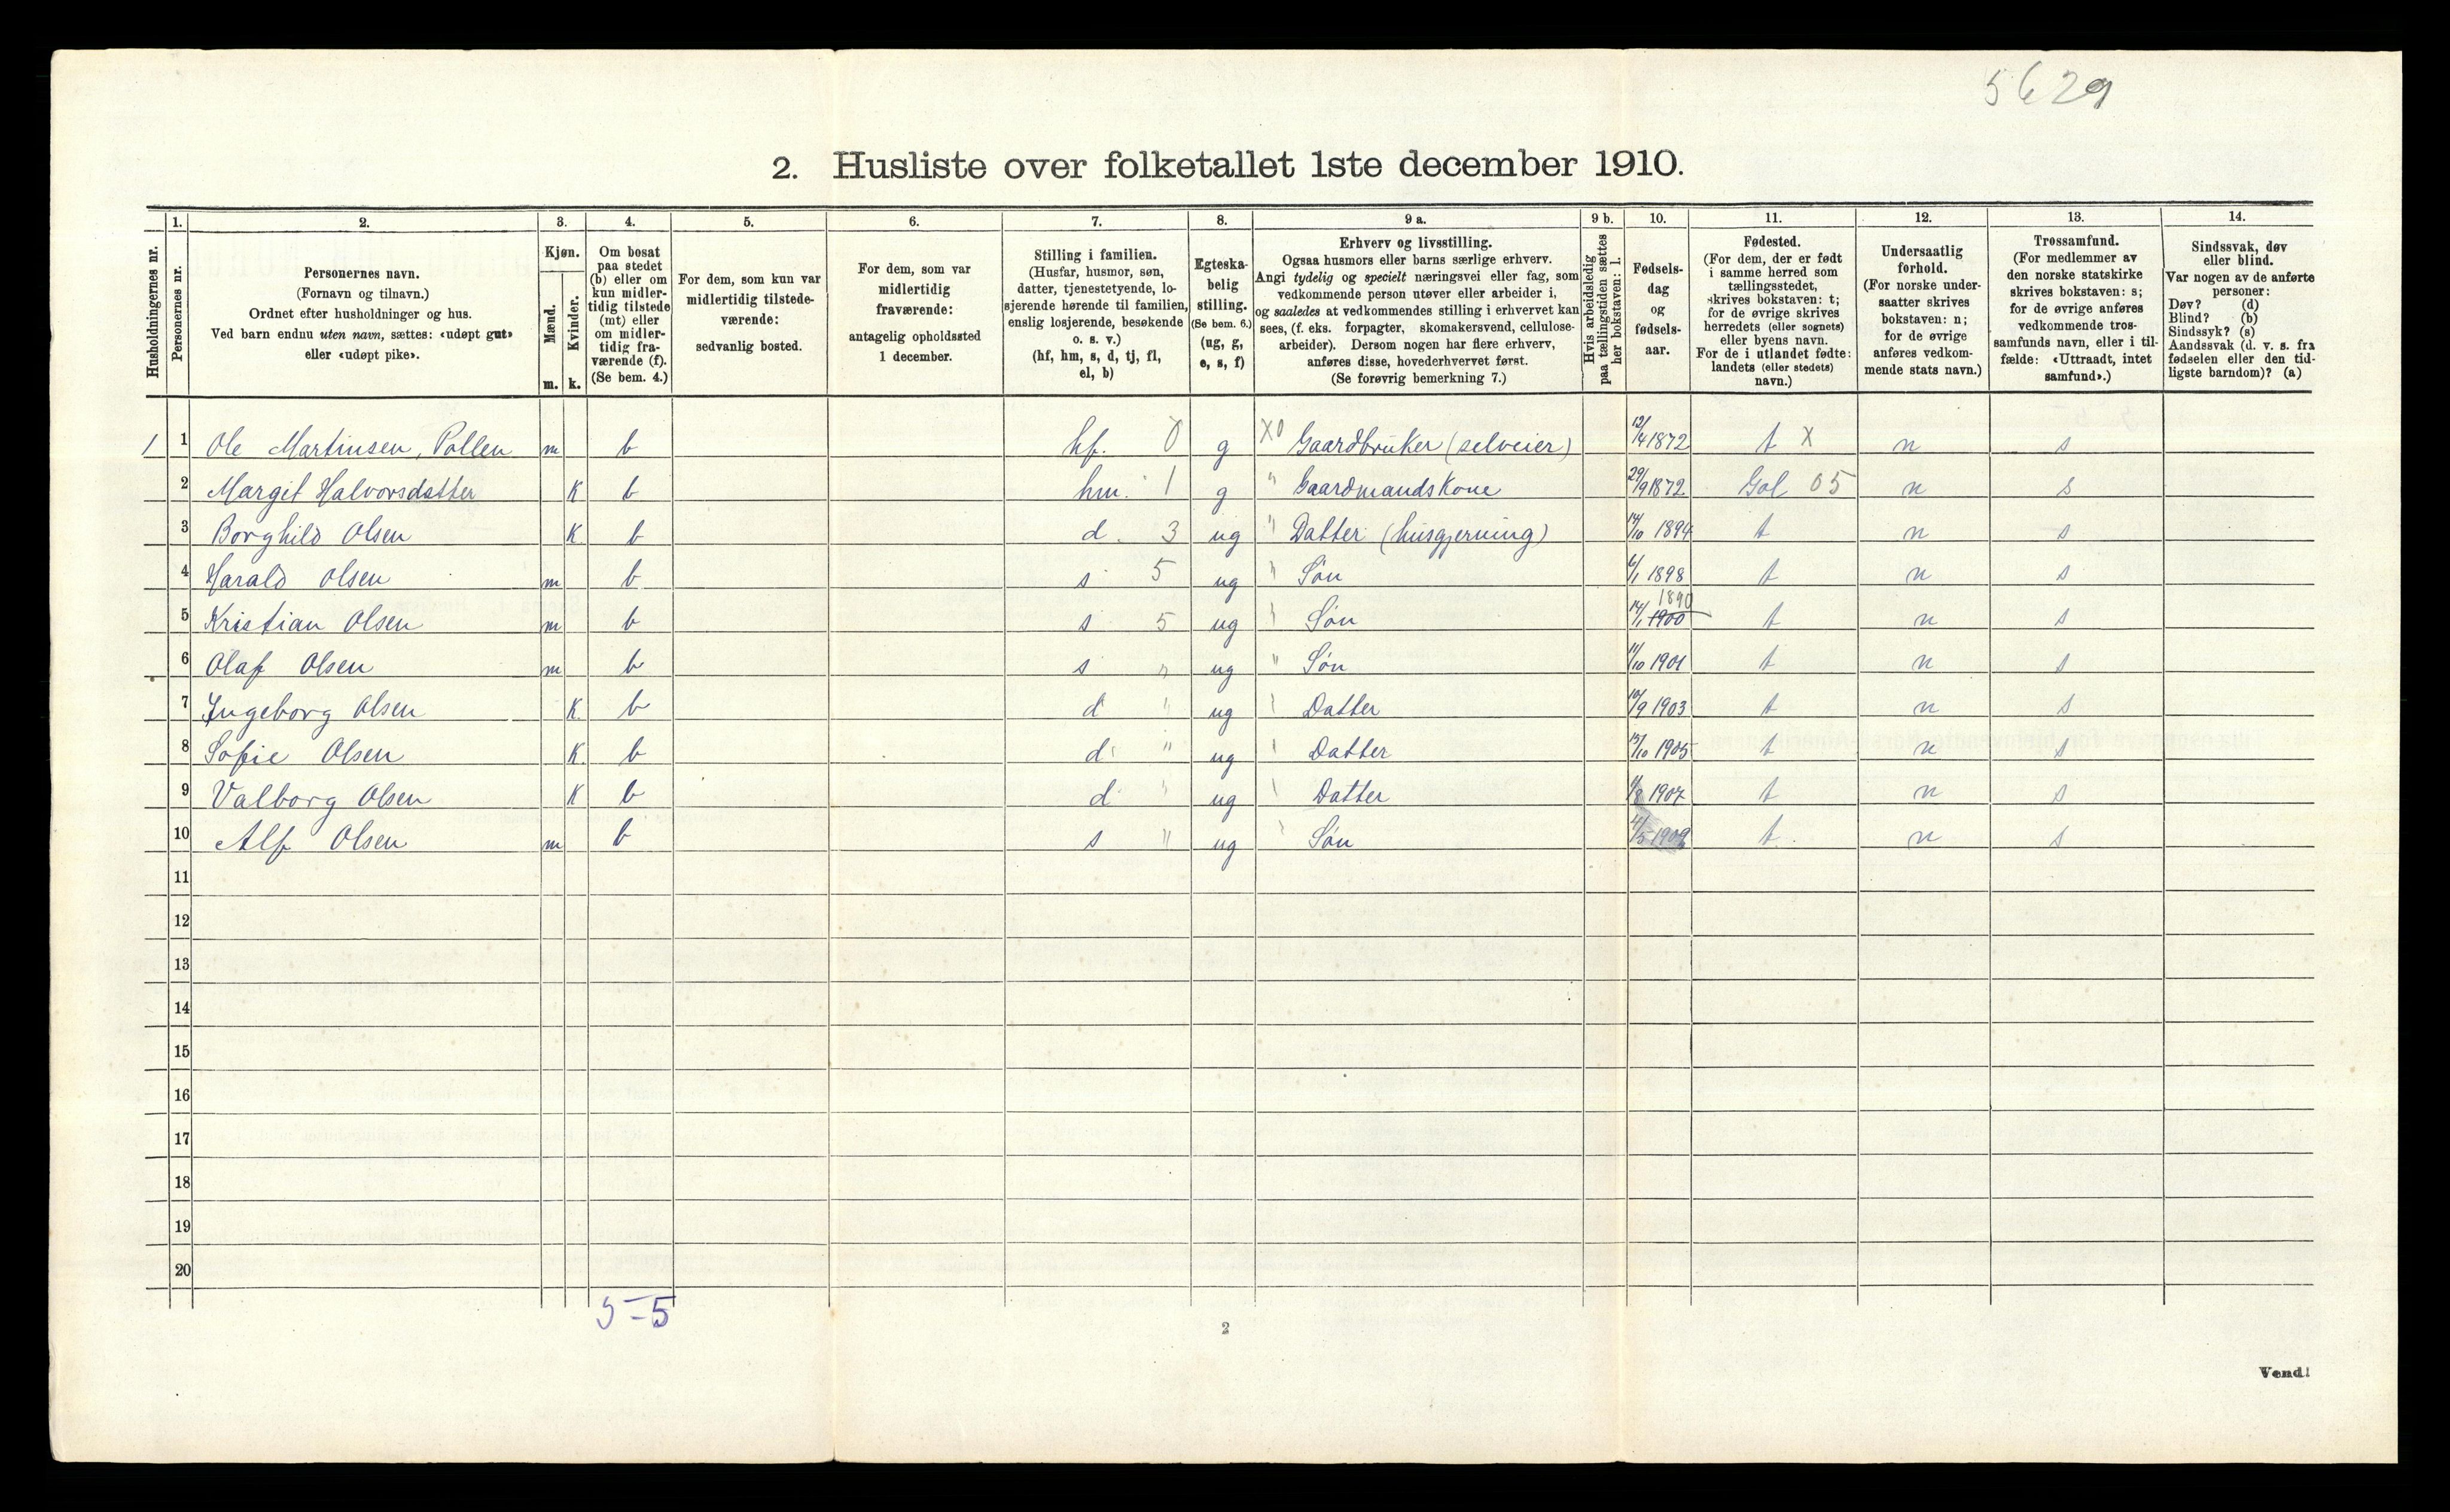 5629
2. Husliste over folketallet 1ste december 1910.
Husholdningernes nr.
1. Personernes nr.
2. Personernes navn.
(Fornavn og tilnavn.)
Ordnet efter husholdninger og hus.
Ved barn endnu uten navn, sættes: «udøpt gut»
eller «udøpt pike».
3. Kjøn.
Mænd. m.
Kvinder. k.
4. Om bosat
paa stedet
(b) eller om
kun midler-
tidig tilstede
(mt) eller
om midler-
tidig fra-
værende (f).
(Se bem. 4.)
5. For dem, som kun var
midlertidig tilstede-
værende:
sedvanlig bosted.
6. For dem, som var
midlertidig
fraværende:
antagelig opholdssted
1 december.
7. Stilling i familien.
(Husfar, husmor, søn,
datter, tjenestetyende, lo-
sjerende hørende til familien,
enslig losjerende, besøkende
o. s. v.)
(hf, hm, s, d, tj, fl,
el, b)
8. Egteska-
belig
stilling.
(Se bem. 6.)
(ug, g,
e, s, f)
9 a. Erhverv og livsstilling.
Ogsaa husmors eller barns særlige erhverv.
Angi tydelig og specielt næringsvei eller fag, som
vedkommende person utøver eller arbeider i,
og saaledes at vedkommendes stilling i erhvervet kan
sees, (f. eks. forpagter, skomakersvend, cellulose-
arbeider). Dersom nogen har flere erhverv,
anføres disse, hovederhvervet først.
(Se forøvrig bemerkning 7.)
9 b. Hvis arbeidsledig
paa tællingstiden sættes
her bokstaven: l.
10. Fødsels-
dag
og
fødsels-
aar.
11. Fødested.
(For dem, der er født
i samme herred som
tællingsstedet,
skrives bokstaven: t;
for de øvrige skrives
herredets (eller sognets)
eller byens navn.
For de i utlandet fødte:
landets (eller stedets)
navn.)
12. Undersaatlig
forhold.
(For norske under-
saatter skrives
bokstaven: n;
for de øvrige
anføres vedkom-
mende stats navn.)
13. Trossamfund.
(For medlemmer av
den norske statskirke
skrives bokstaven: s;
for de øvrige anføres
vedkommende tros-
samfunds navn, eller i til-
fælde: «Uttraadt, intet
samfund».)
14. Sindssvak, døv
eller blind.
Var nogen av de anførte
personer:
Døv? (d)
Blind? (b)
Sindssyk? (s)
Aandssvak (d. v. s. fra
fødselen eller den tid-
ligste barndom)? (a)
1 1 Ole Martinsen, Pollen m b hf. 0 g X0 Gaardbruker (selveier) 13/4 1872 t X n s
2 Margit Halvorsdatter K b hm. 1 g " Gaardmandskone 29/9 1872 Gol 05 n s
3 Borghild Olsen K b d. 3 ug " Datter (husgjerning) 14/10 1894 t n s
4 Harald Olsen m b s 5 ug " Søn 6/1 1898 t n s
5 Kristian Olsen m b s 5 ug " Søn 14/1 1900 1890 t n s
6 Olaf Olsen m b s " ug " Søn 11/10 1901 t n s
7 Ingeborg Olsen K. b d " ug " Datter 10/9 1903 t n s
8 Sofie Olsen K. b d " ug " Datter 15/10 1905 t n s
9 Valborg Olsen K b d " ug " Datter 1/8 1907 t n s
10 Alf Olsen m b s " ug " Søn 4/5 1909 t. n s
11
12
13
14
15
16
17
18
19
20
5-5
2
Vend!